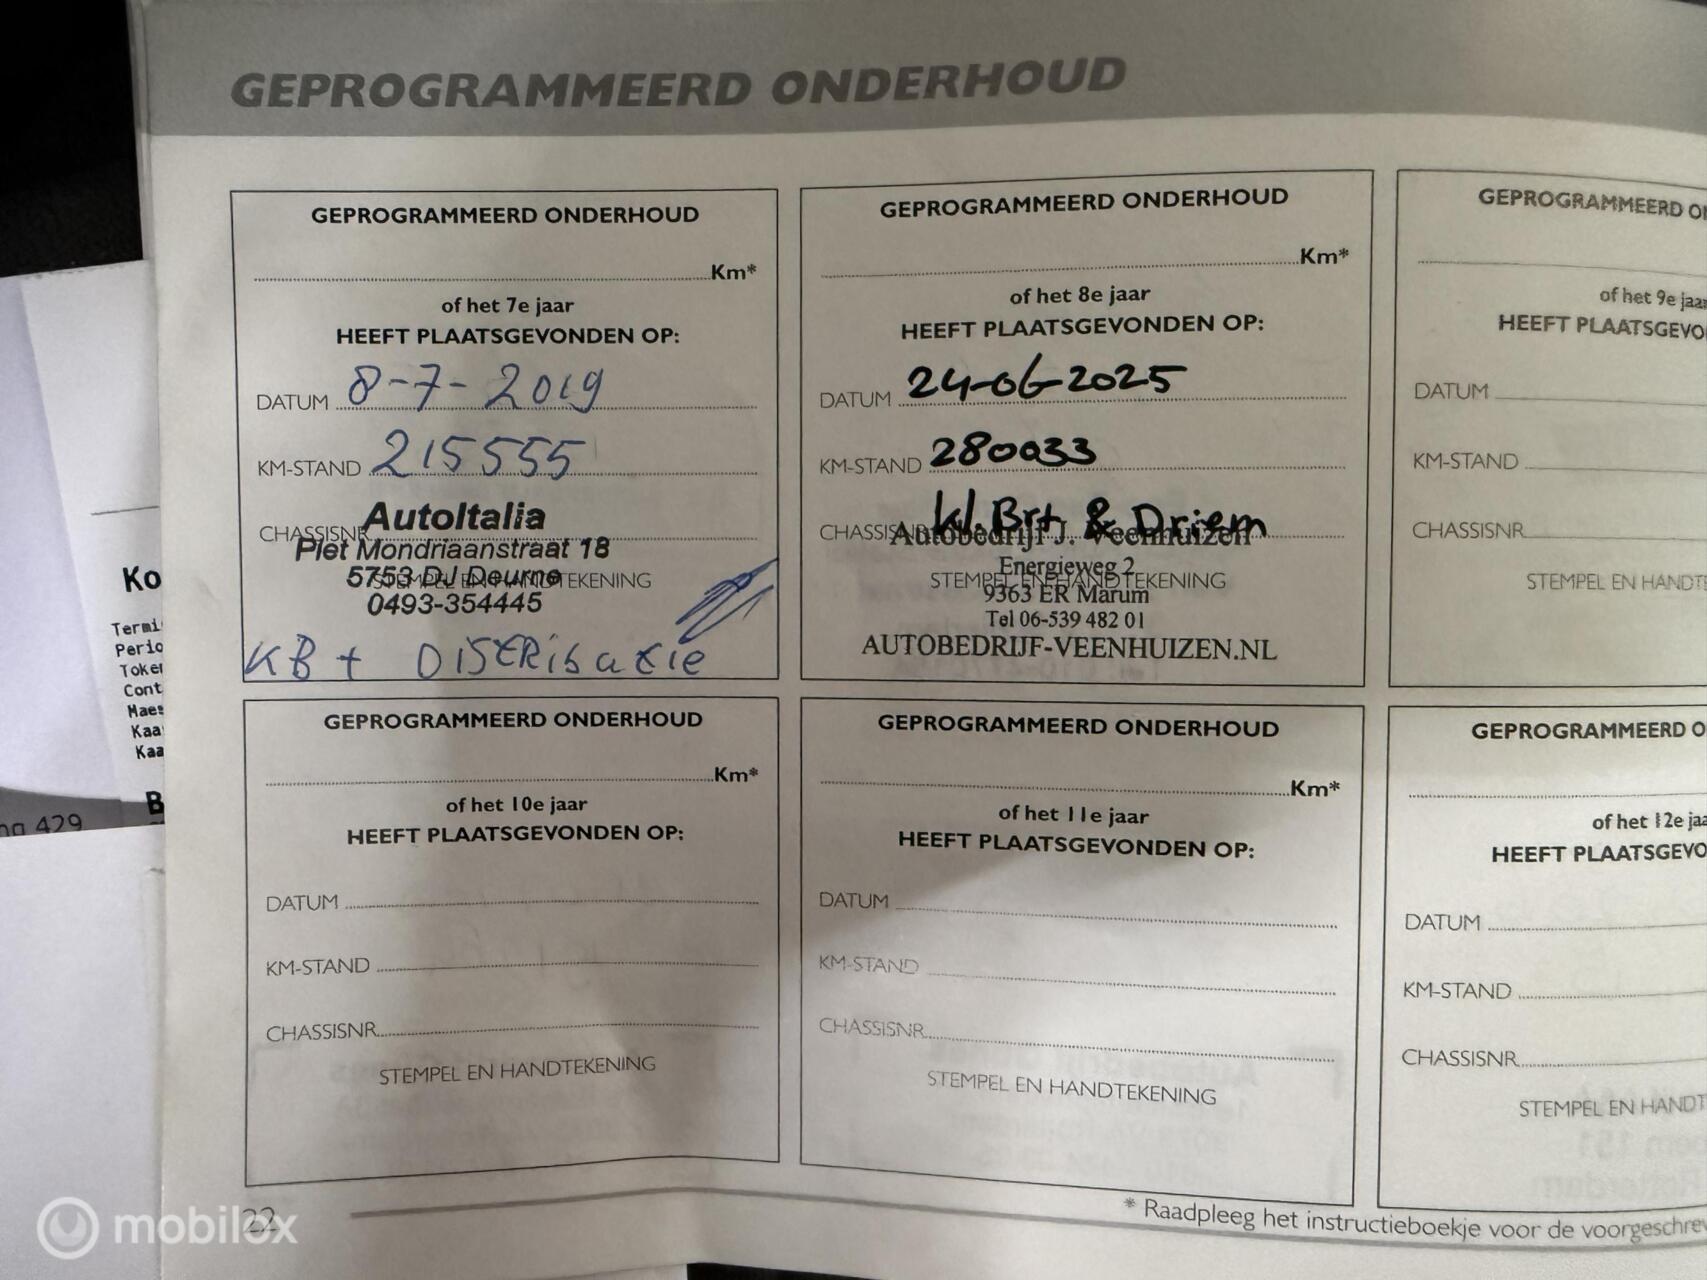 GEPROGRAMMEERD ONDERHOUD
GEPROGRAMMEERD ONDERHOUD
Km*
of het 7e jaar
HEEFT PLAATSGEVONDEN OP:
DATUM 8-7-2019
KM-STAND 215555
CHASSISNR
AutoItalia
Piet Mondriaanstraat 18
5753 DJ Deurne
STEMPEL EN HANDTEKENING
0493-354445
KB + DISTRIBUTIE
GEPROGRAMMEERD ONDERHOUD
Km*
of het 8e jaar
HEEFT PLAATSGEVONDEN OP:
DATUM 24-06-2025
KM-STAND 280033
CHASSISNR kl. Brt & Driem
Autobedrijf J. Veenhuizen
Energieweg 2
STEMPEL EN HANDTEKENING
9363 ER Marum
Tel 06-539 482 01
AUTOBEDRIJF-VEENHUIZEN.NL
GEPROGRAMMEERD O
of het 9e jaa
HEEFT PLAATSGEVO
DATUM
KM-STAND
CHASSISNR
STEMPEL EN HANDT
GEPROGRAMMEERD ONDERHOUD
Km*
of het 10e jaar
HEEFT PLAATSGEVONDEN OP:
DATUM
KM-STAND
CHASSISNR
STEMPEL EN HANDTEKENING
GEPROGRAMMEERD ONDERHOUD
Km*
of het 11e jaar
HEEFT PLAATSGEVONDEN OP:
DATUM
KM-STAND
CHASSISNR
STEMPEL EN HANDTEKENING
GEPROGRAMMEERD O
of het 12e jaa
HEEFT PLAATSGEVO
DATUM
KM-STAND
CHASSISNR
STEMPEL EN HANDT
* Raadpleeg het instructieboekje voor de voorgeschrev
22
Ko
Termi
Perio
Token
Cont
Maes
Kaa
Kaa
B
ng 429
mobilox